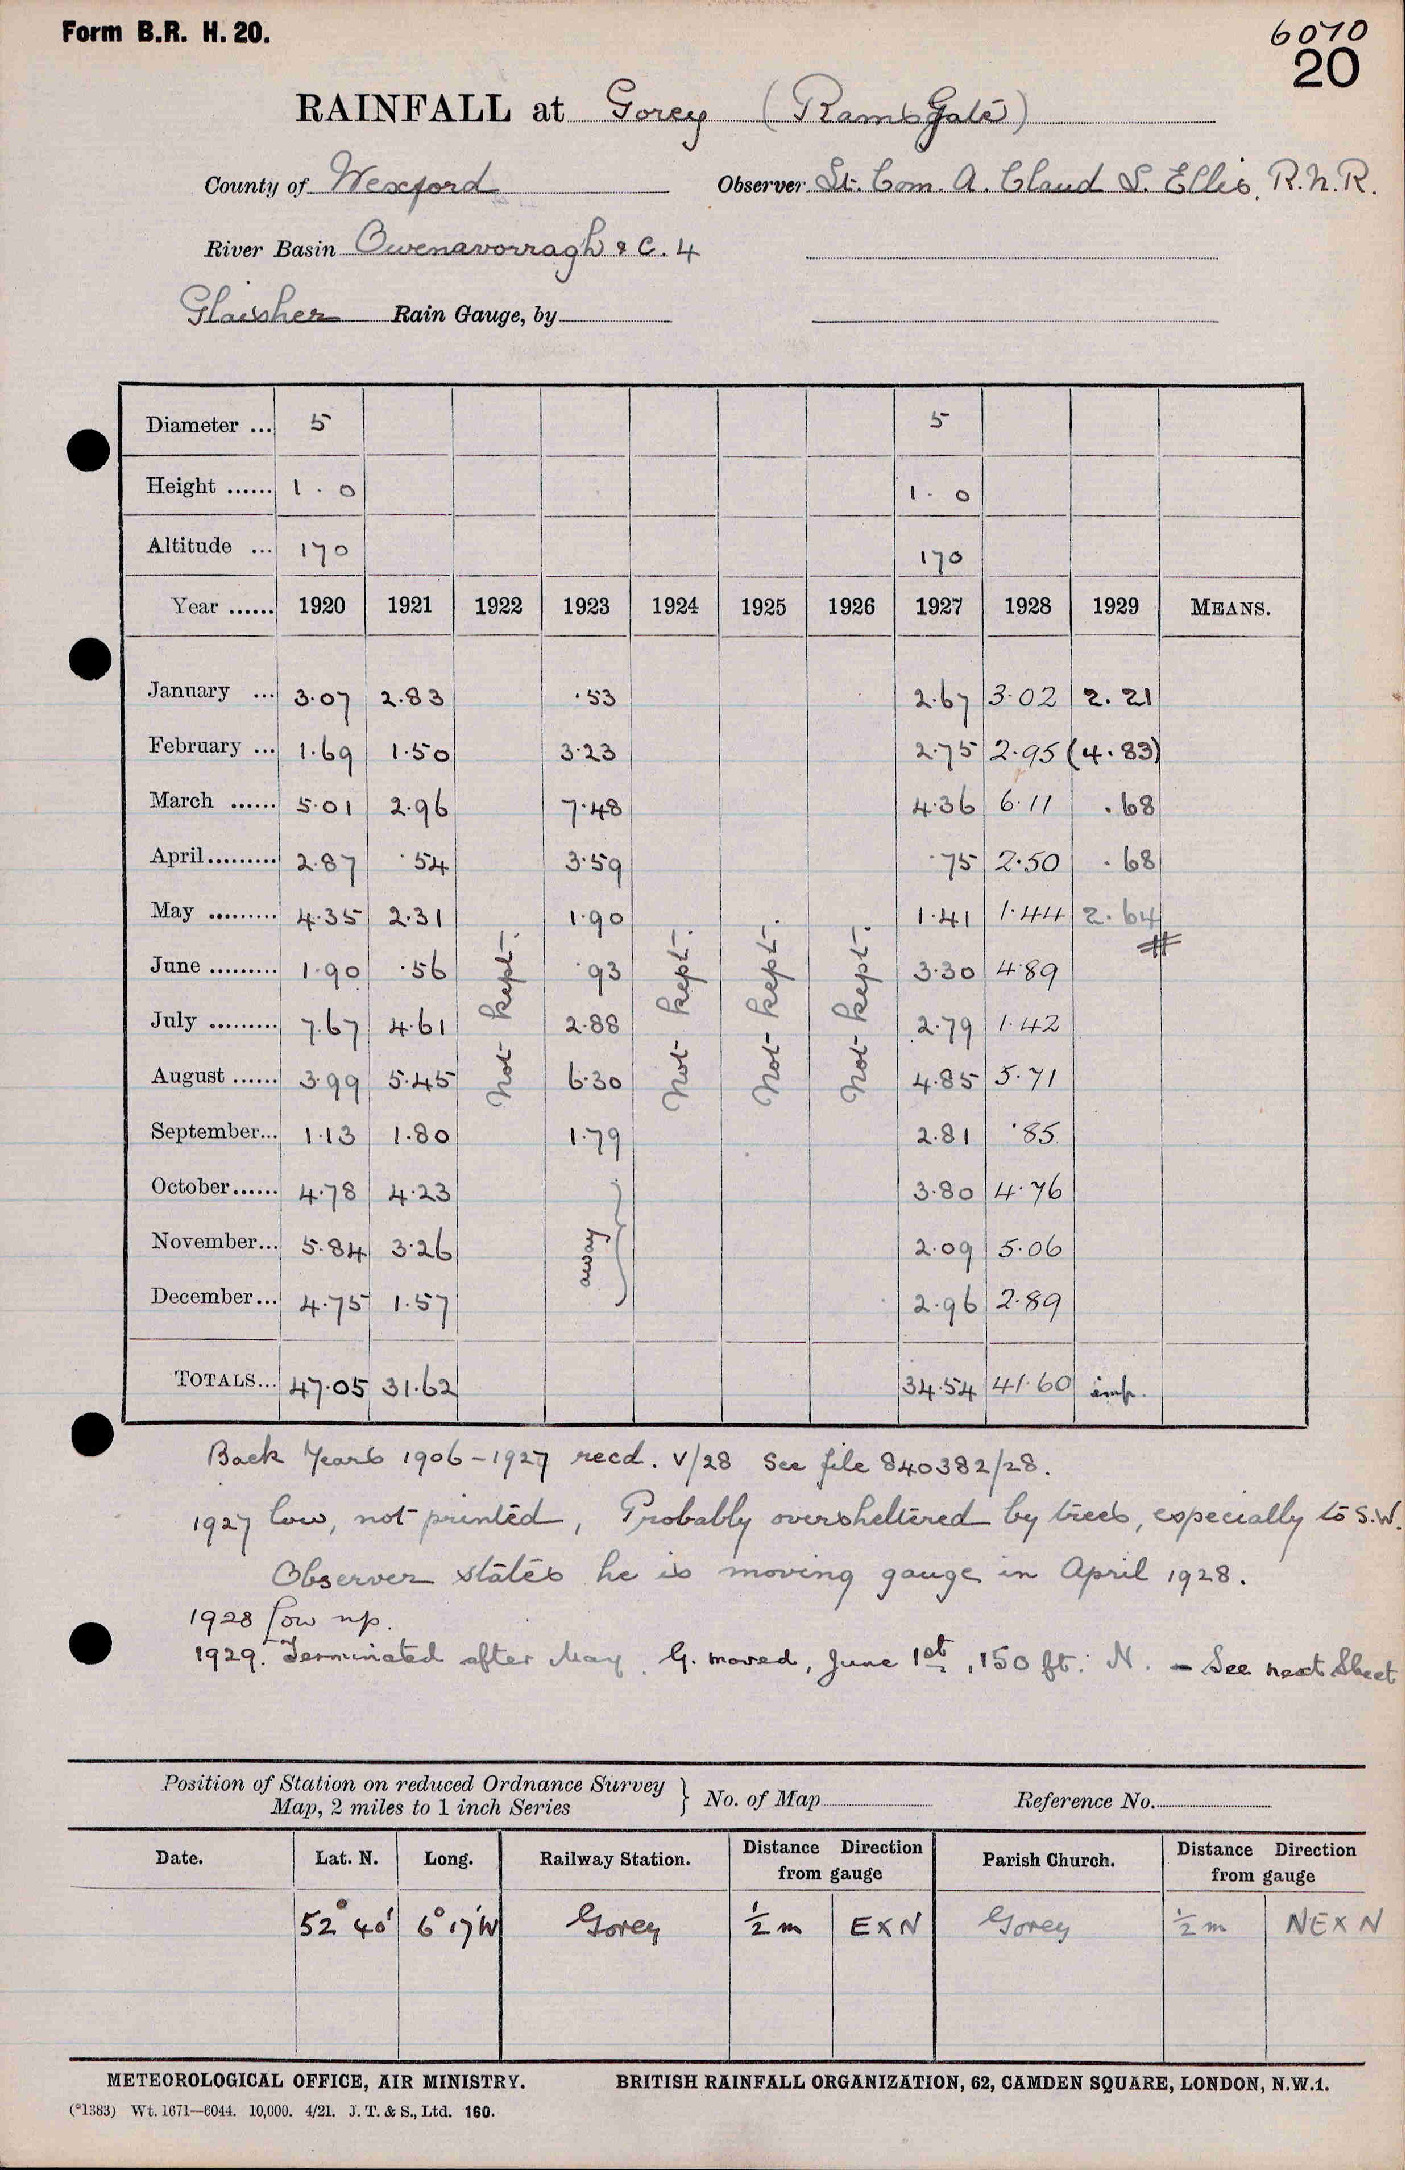 Form B.R. H. 20.
6070
20
RAINFALL at Gorey (Ramsgate)
County of Wexford Observer Lt. Com. A. Claud S. Ellis, R.N.R.
River Basin Owenavorragh & C. 4
Glaisher Rain Gauge, by
Diameter ... 5 5
Height ...... 1 . 0 1 . 0
Altitude ... 170 170
Year ...... 1920 1921 1922 1923 1924 1925 1926 1927 1928 1929 MEANS.
January ... 3.07 2.83 .53 2.67 3.02 2.21
February ... 1.69 1.50 3.23 2.75 2.95 (4.83)
March ...... 5.01 2.96 7.48 4.36 6.11 .68
April......... 2.87 .54 3.59 .75 2.50 .68
May ......... 4.35 2.31 1.90 1.41 1.44 2.64
June ......... 1.90 .56 Not kept. .93 Not kept. Not kept. Not kept. 3.30 4.89 #
July ......... 7.67 4.61 2.88 2.79 1.42
August ...... 3.99 5.45 6.30 4.85 5.71
September... 1.13 1.80 1.79 2.81 .85
October...... 4.78 4.23 3.80 4.76
November... 5.84 3.26 away } 2.09 5.06
December... 4.75 1.57 2.96 2.89
TOTALS... 47.05 31.62 34.54 41.60 imp.
Back Years 1906-1927 recd. V/28 See file 840382/28.
1927 low, not printed, Probably oversheltered by trees, especially to S.W.
Observer states he is moving gauge in April 1928.
1928 low np.
1929. Terminated after May. G. moved, June 1st, 150 ft. N. - See next Sheet
Position of Station on reduced Ordnance Survey
Map, 2 miles to 1 inch Series } No. of Map Reference No.
Date. Lat. N. Long. Railway Station. Distance Direction from gauge Parish Church. Distance Direction from gauge
52° 40' 6° 17'W Gorey ½ m E X N Gorey ½ m NE X N
METEOROLOGICAL OFFICE, AIR MINISTRY. BRITISH RAINFALL ORGANIZATION, 62, CAMDEN SQUARE, LONDON, N.W.1.
(*1383) Wt. 1671—6044. 10,000. 4/21. J. T. & S., Ltd. 160.